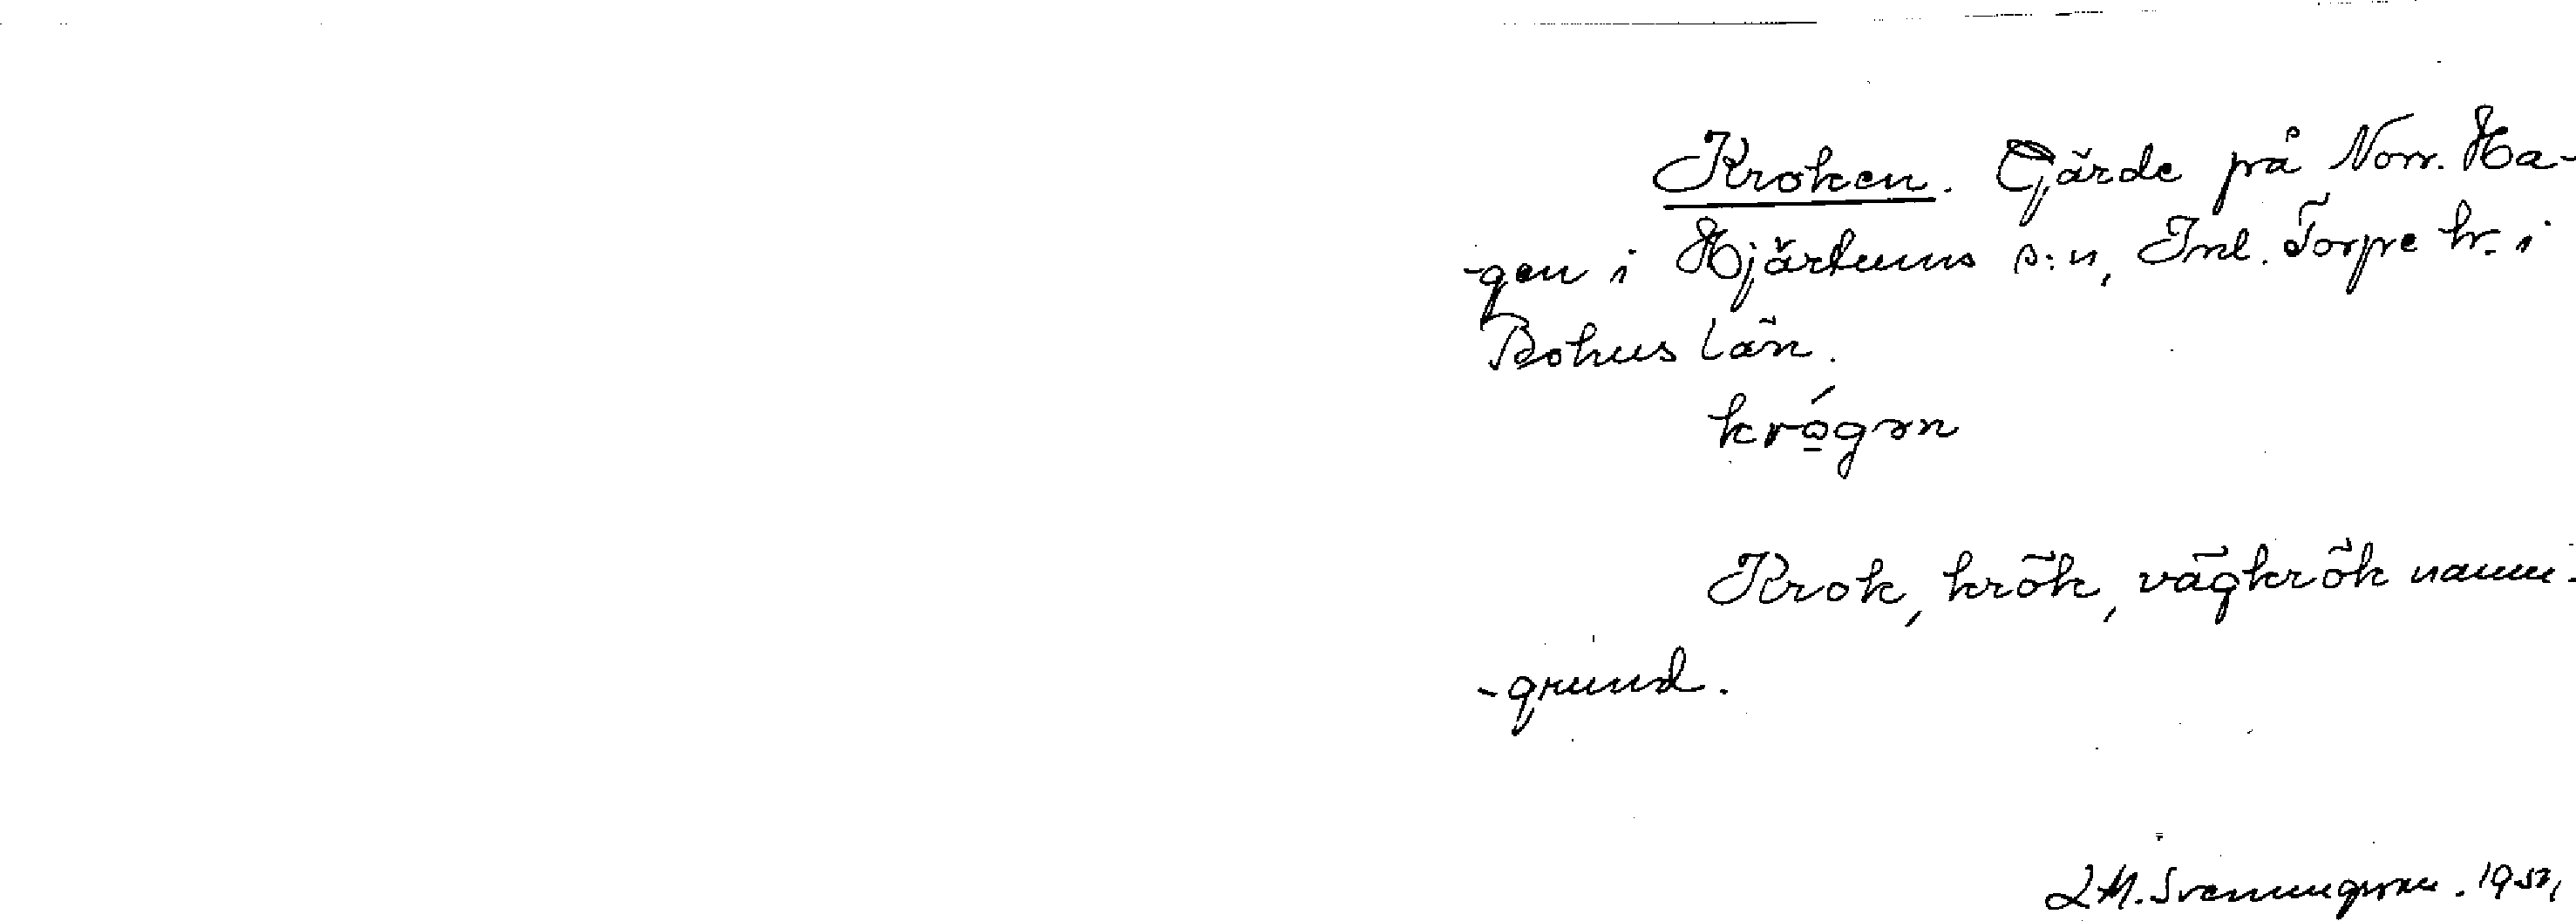 Kroken. Gärde på Norr. Ha-
-gen i Hjärtums s:n, Inl. Torpe hr. i
Bohus län.
krǫ́gən
Krok, krök, vägkrök namn-
-grund.
L M. Svenungsson. 195